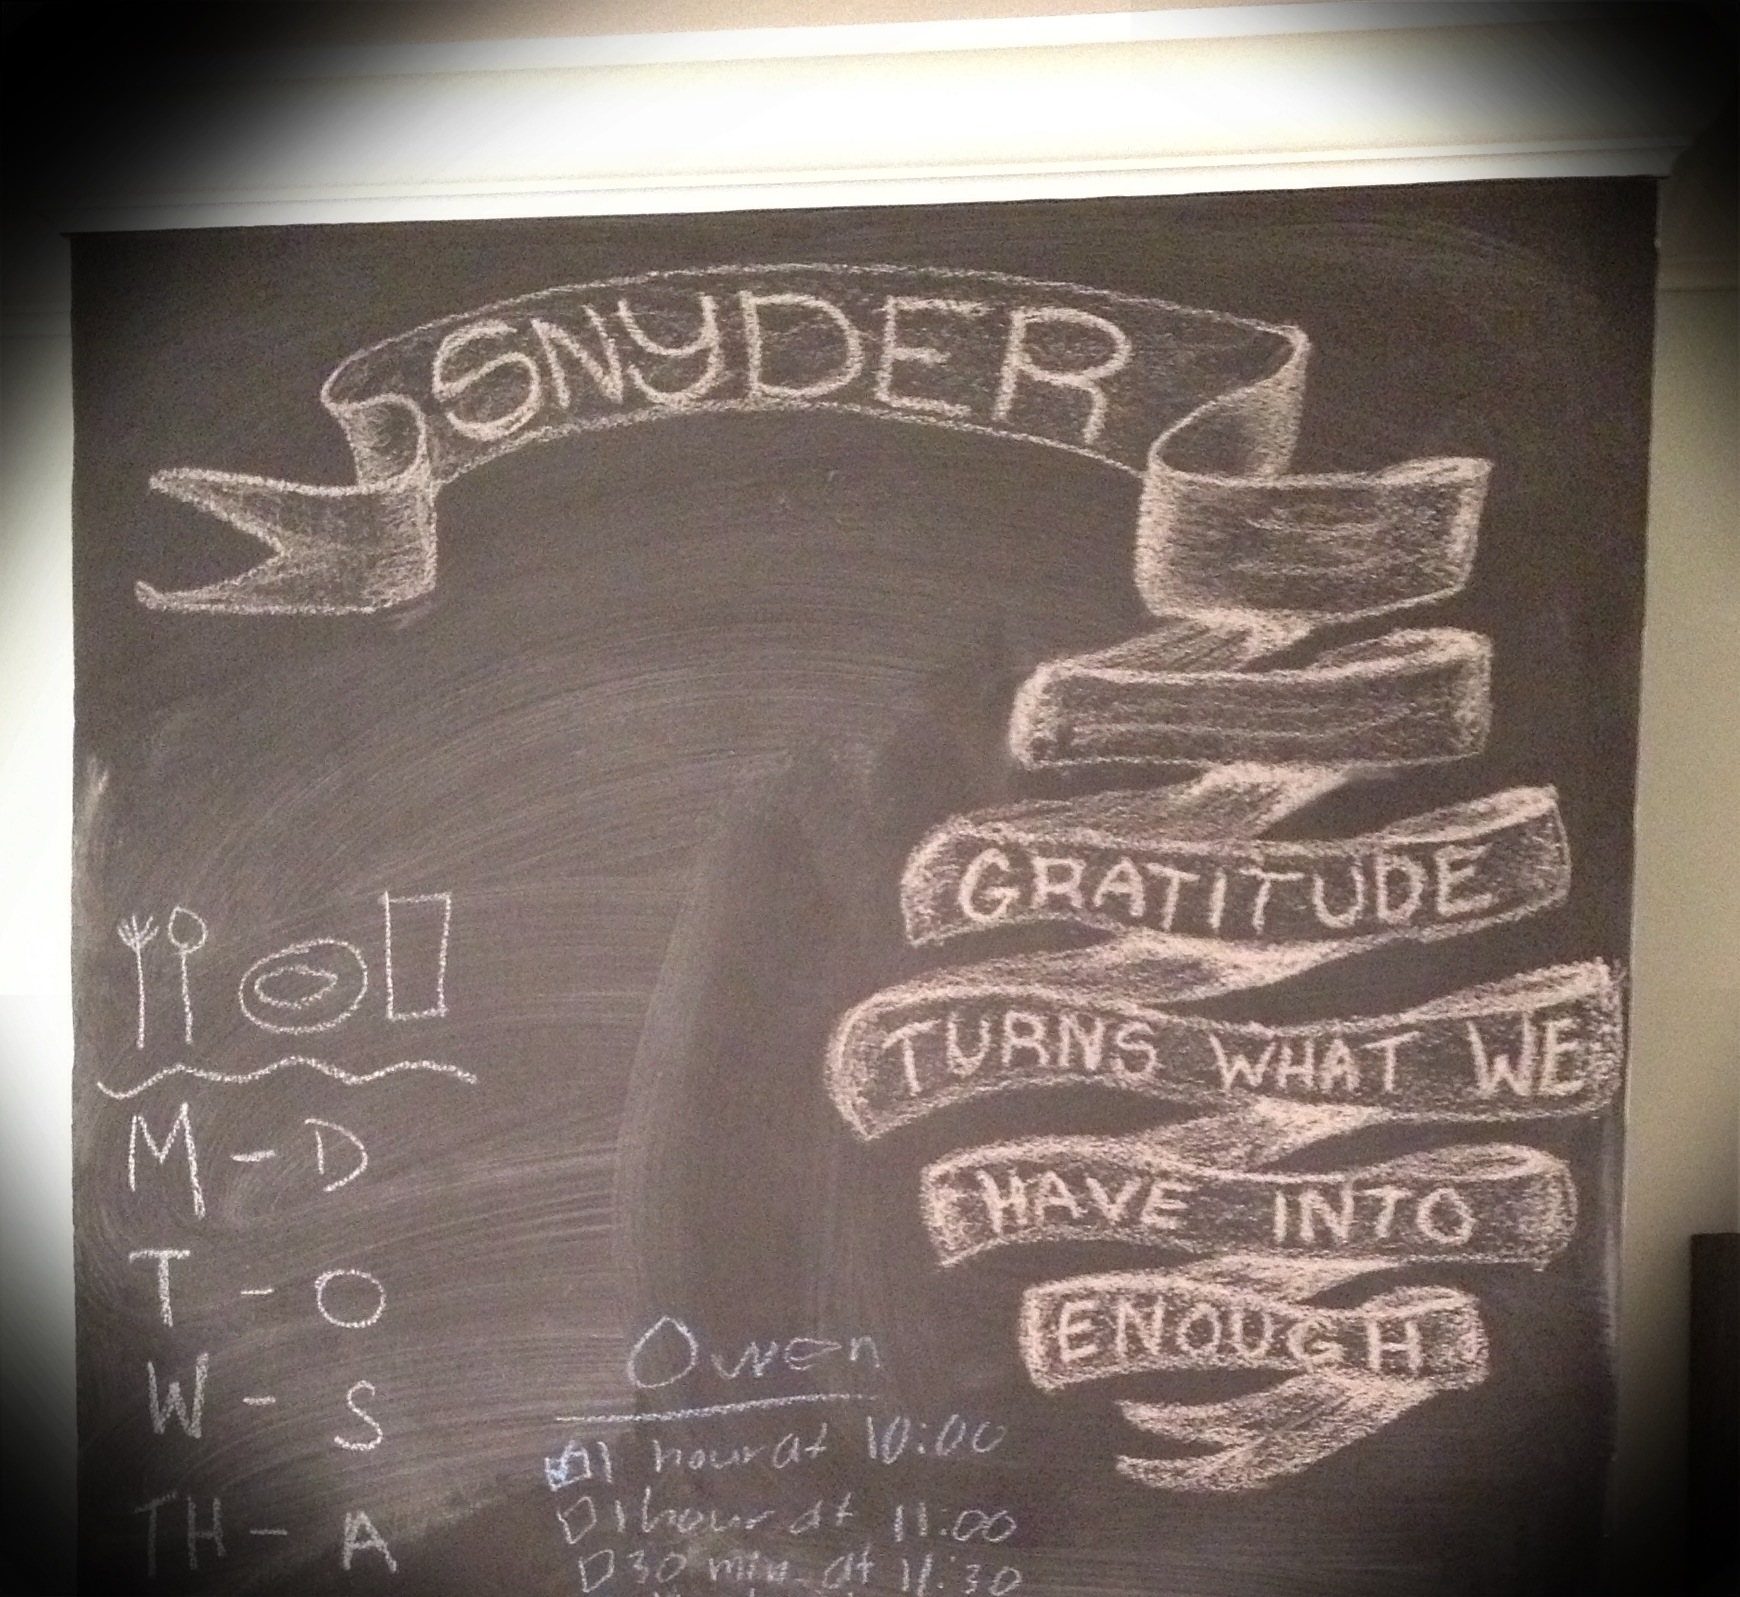 SNYDER
GRATITUDE
TURNS WHAT WE
HAVE INTO
ENOUGH
M - D
T - O
W - S
TH - A
Owen
1 hour at 10:00
1 hour at 11:00
30 min. at 11:30